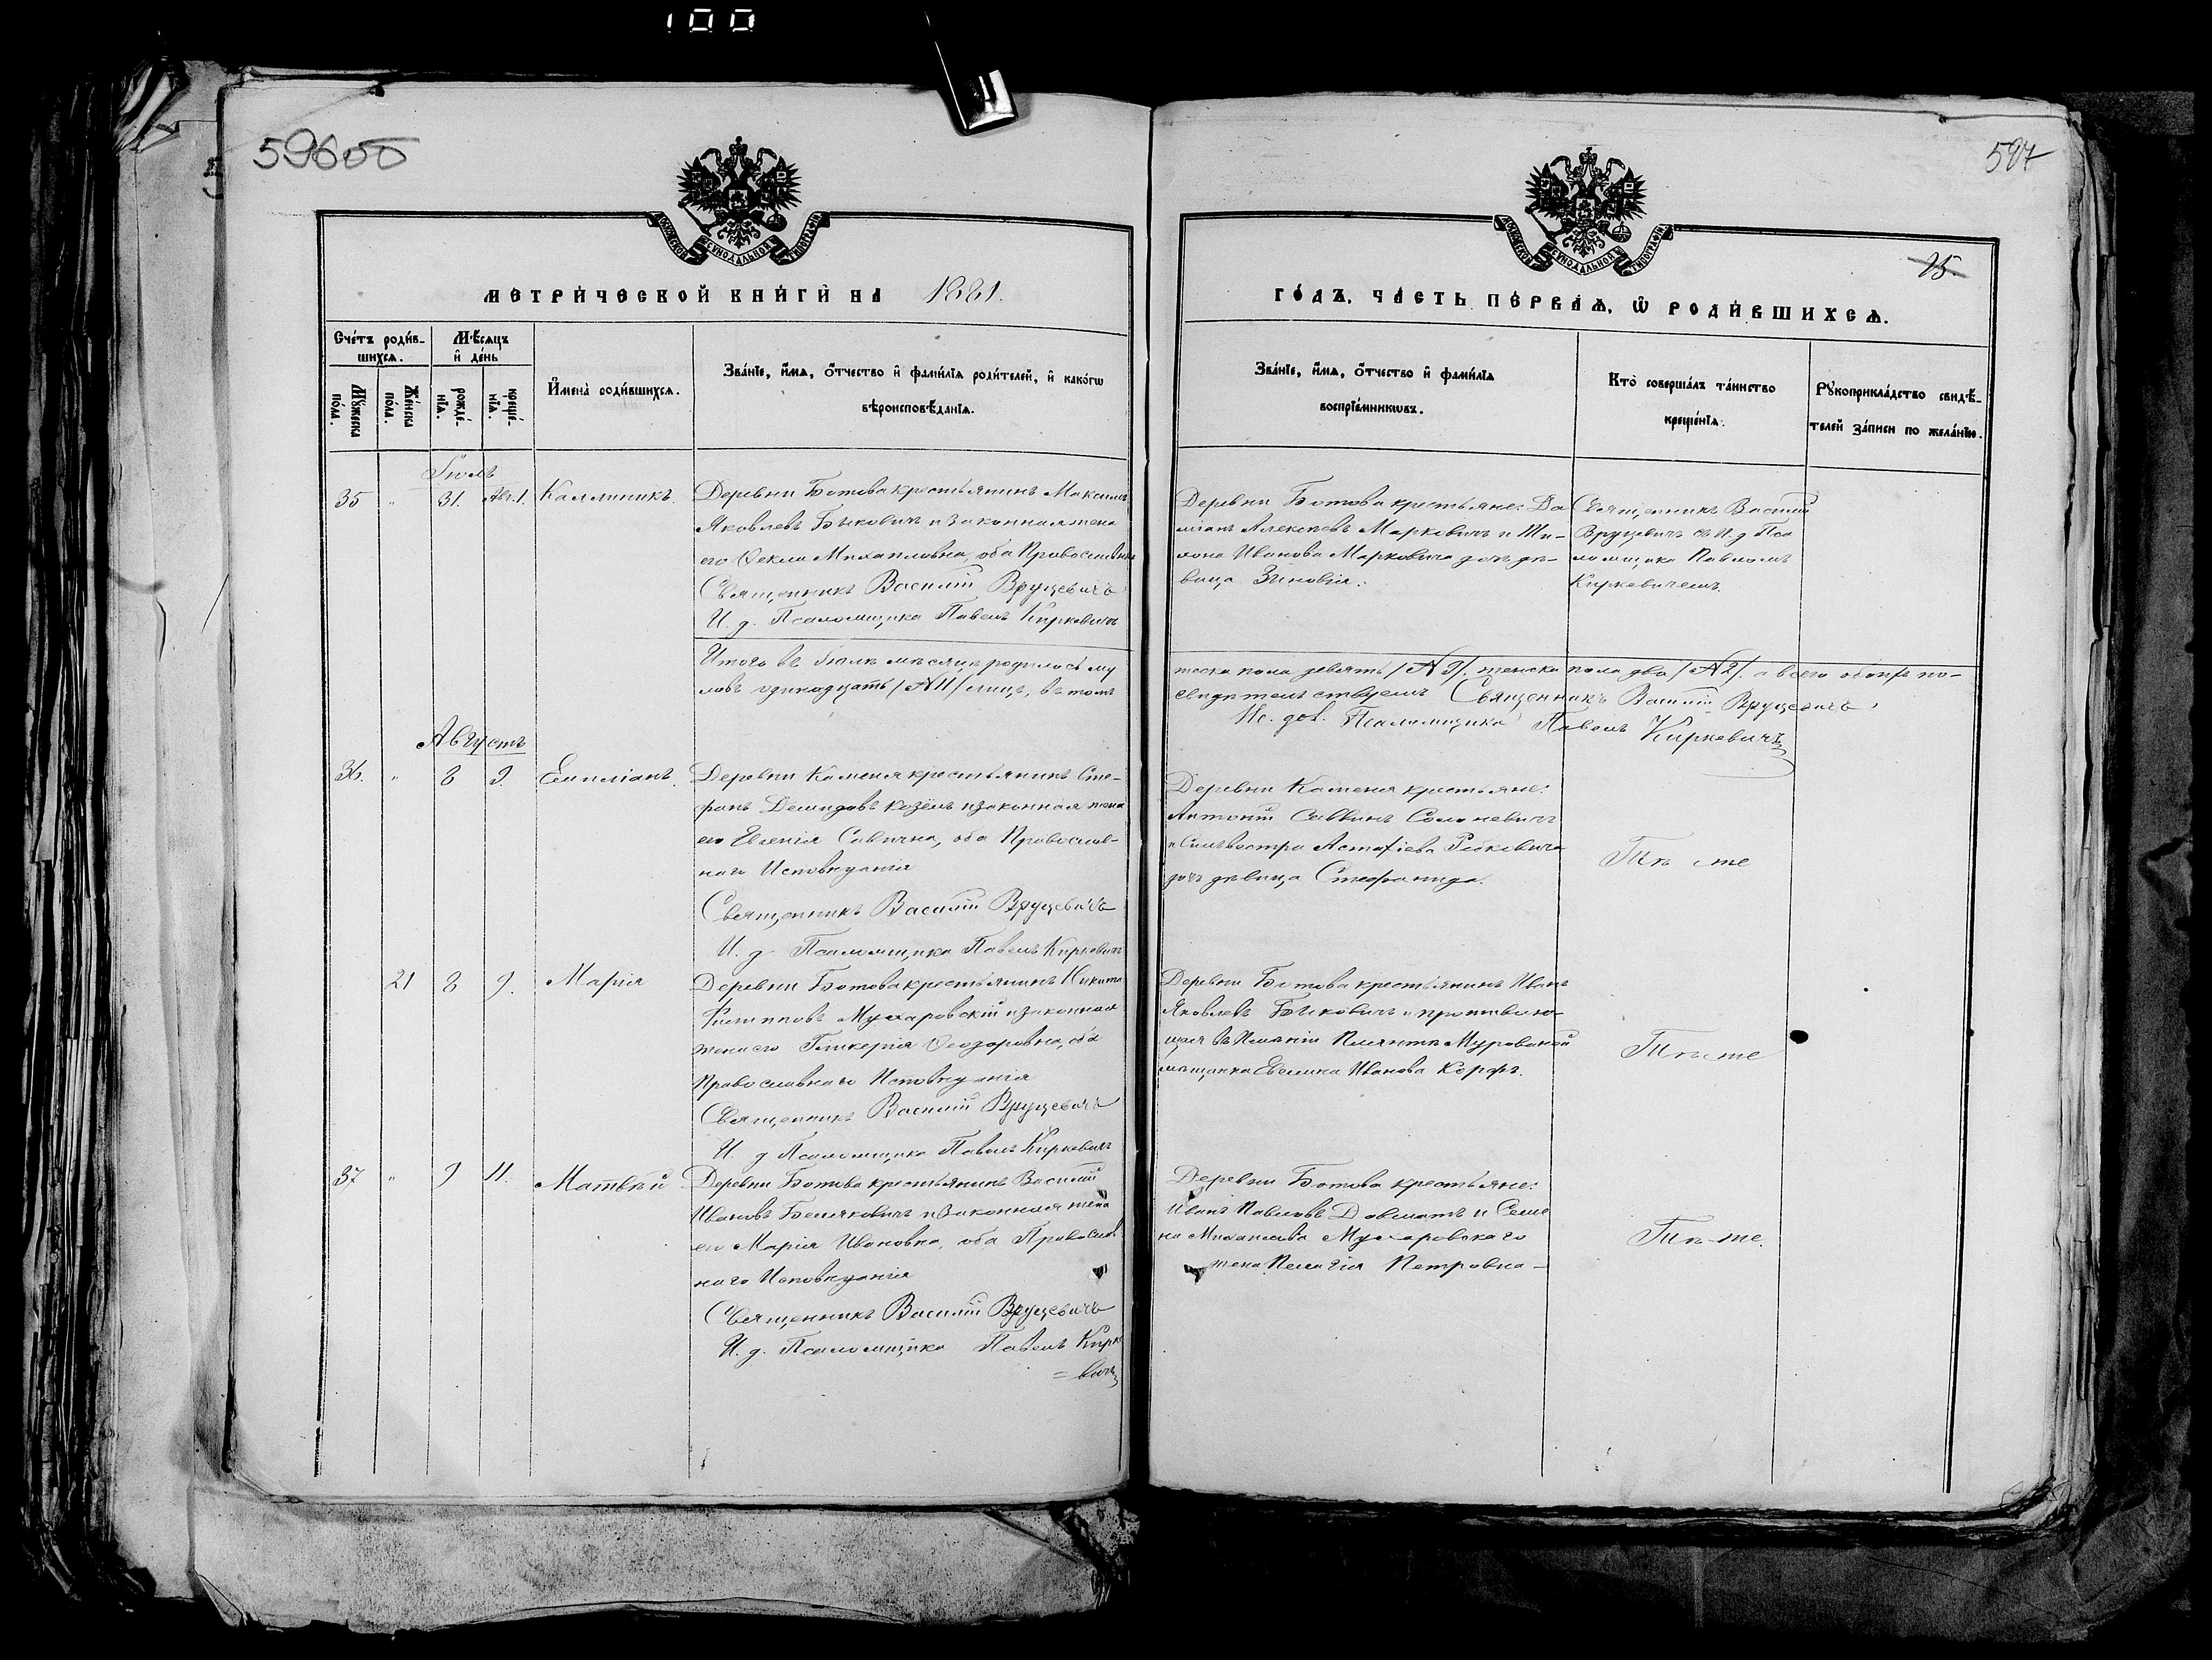 100
59600
597
25
МЕТРИЧЕСКОЙ КНИГИ НА 1881.
ГОДЪ, ЧАСТЬ ПЕРВАЯ, Ѡ РОДИВШИХСЯ.
Счетъ родив-
шихся.
Мужеска
пола.
Женска
пола.
Мѣсяцъ
и день
рожде-
нія.
креще-
нія.
Имена родившихся.
Званіе, имя, отчество и фамилія родителей, и какогѡ
вѣроисповѣданія.
Званіе, имя, отчество и фамилія
воспріемникѡвъ.
Кто совершалъ таинство
крещенія.
Рукоприкладство свидѣ-
телей записи по желанію.
Іюль
35 " 31. Авг. 1. Каллиникъ.
Деревни Ботова крестьянинъ Максимъ
Яковлевъ Быковичъ и законная жена
его Ѳекла Михаиловна, оба Православн
Священникъ Василій Вруцевичъ
И. д. Псаломщика Павелъ Киркевичъ
Деревни Ботова крестьяне: Да
міанъ Алексѣевъ Марковичъ и Ти-
хона Иванова Марковича дочь дѣ-
вица Зиновія.
Священникъ Василій
Вруцевичъ съ И. д. Пса
ломщика Павломъ
Киркевичемъ.
Итого въ Іюлѣ мѣсяцѣ родилось му
жеска пола девять /№ 9/, женска пола два /№ 2/. а всего обоего по-
ловъ одинадцать /№ 11/ лицъ, въ томъ
свидѣтельствуемъ Священникъ Василій Вруцевичъ
Ис. дол. Псаломщика Павелъ Киркевичъ
Августъ
36. " 8 9. Емиліанъ.
Деревни Каменя крестьянинъ Сте-
фанъ Демидовъ Козелъ и законная жена
его Евгенія Савична, оба Православ-
наго Исповѣданія
Священникъ Василій Вруцевичъ
И. д. Псаломщика Павелъ Киркевичъ
Деревни Каменя крестьяне:
Антоній Саввинъ Солоневичъ
и Сильвестра Астафіева
дочь дѣвица Стефанида.
Тѣ же
21 8 9. Марія
Деревни Ботова крестьянинъ Никита
Филипповъ Мухаровскій и законная
жена его Гликерія Ѳеодоровна, оба
Православнаго Исповѣданія
Священникъ Василій Вруцевичъ
И. д. Псаломщика Павелъ Киркевичъ
Деревни Ботова крестьянинъ Иванъ
Яковлевъ Быковичъ и проживаю-
щая въ Мурованой
мѣщанка Евелина Иванова Корфъ.
Тѣ же
37 " 9 11. Матвѣй
Деревни Ботова крестьянинъ Василій
Ивановъ Беляковичъ и законная жена
его Марія Ивановна, оба Православ
наго Исповѣданія
Священникъ Василій Вруцевичъ
И. д. Псаломщика Павелъ Кирке
= вичъ
Деревни Ботова крестьяне:
Иванъ Павловъ Довматъ и Семе
на Михаилова Мухаровскаго
жена Пелагія Петровна
Тѣ же.